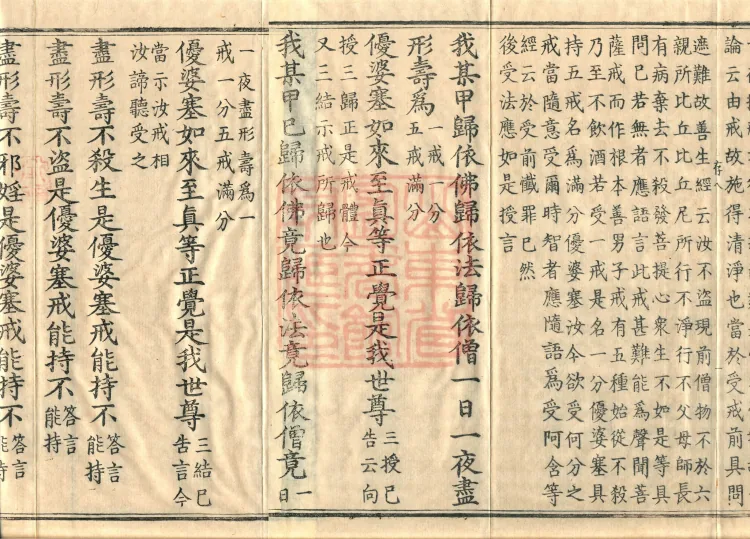 論云由戒故施得清淨也當於受戒前具問
遮難故善生經云汝不盜現前僧物不於六
親所比丘比丘尼所行不淨行不父母師長
有病棄去不殺發菩提心衆生不如是等具
問已若無者應語言此戒甚難能爲聲聞菩
薩戒而作根本善男子戒有五種始從不殺
乃至不飲酒若受一戒是名一分優婆塞具
持五戒名爲滿分優婆塞汝今欲受何分之
戒當隨意受爾時智者應隨語爲受阿含等
經云於受前懺罪已然
後受法應如是授言
我某甲歸依佛歸依法歸依僧一日一夜盡
形壽爲一戒一分五戒滿分
優婆塞如來至真等正覺是我世尊三授已告云向
授三歸正是戒體今
又三結示戒所歸也
我某甲已歸依佛竟歸依法竟歸依僧竟一日
一夜盡形壽爲一
戒一分五戒滿分
優婆塞如來至真等正覺是我世尊三結已告言今
當示汝戒相
汝諦聽受之
盡形壽不殺生是優婆塞戒能持不答言能持
盡形壽不盜是優婆塞戒能持不答言能持
盡形壽不邪婬是優婆塞戒能持不答言能持